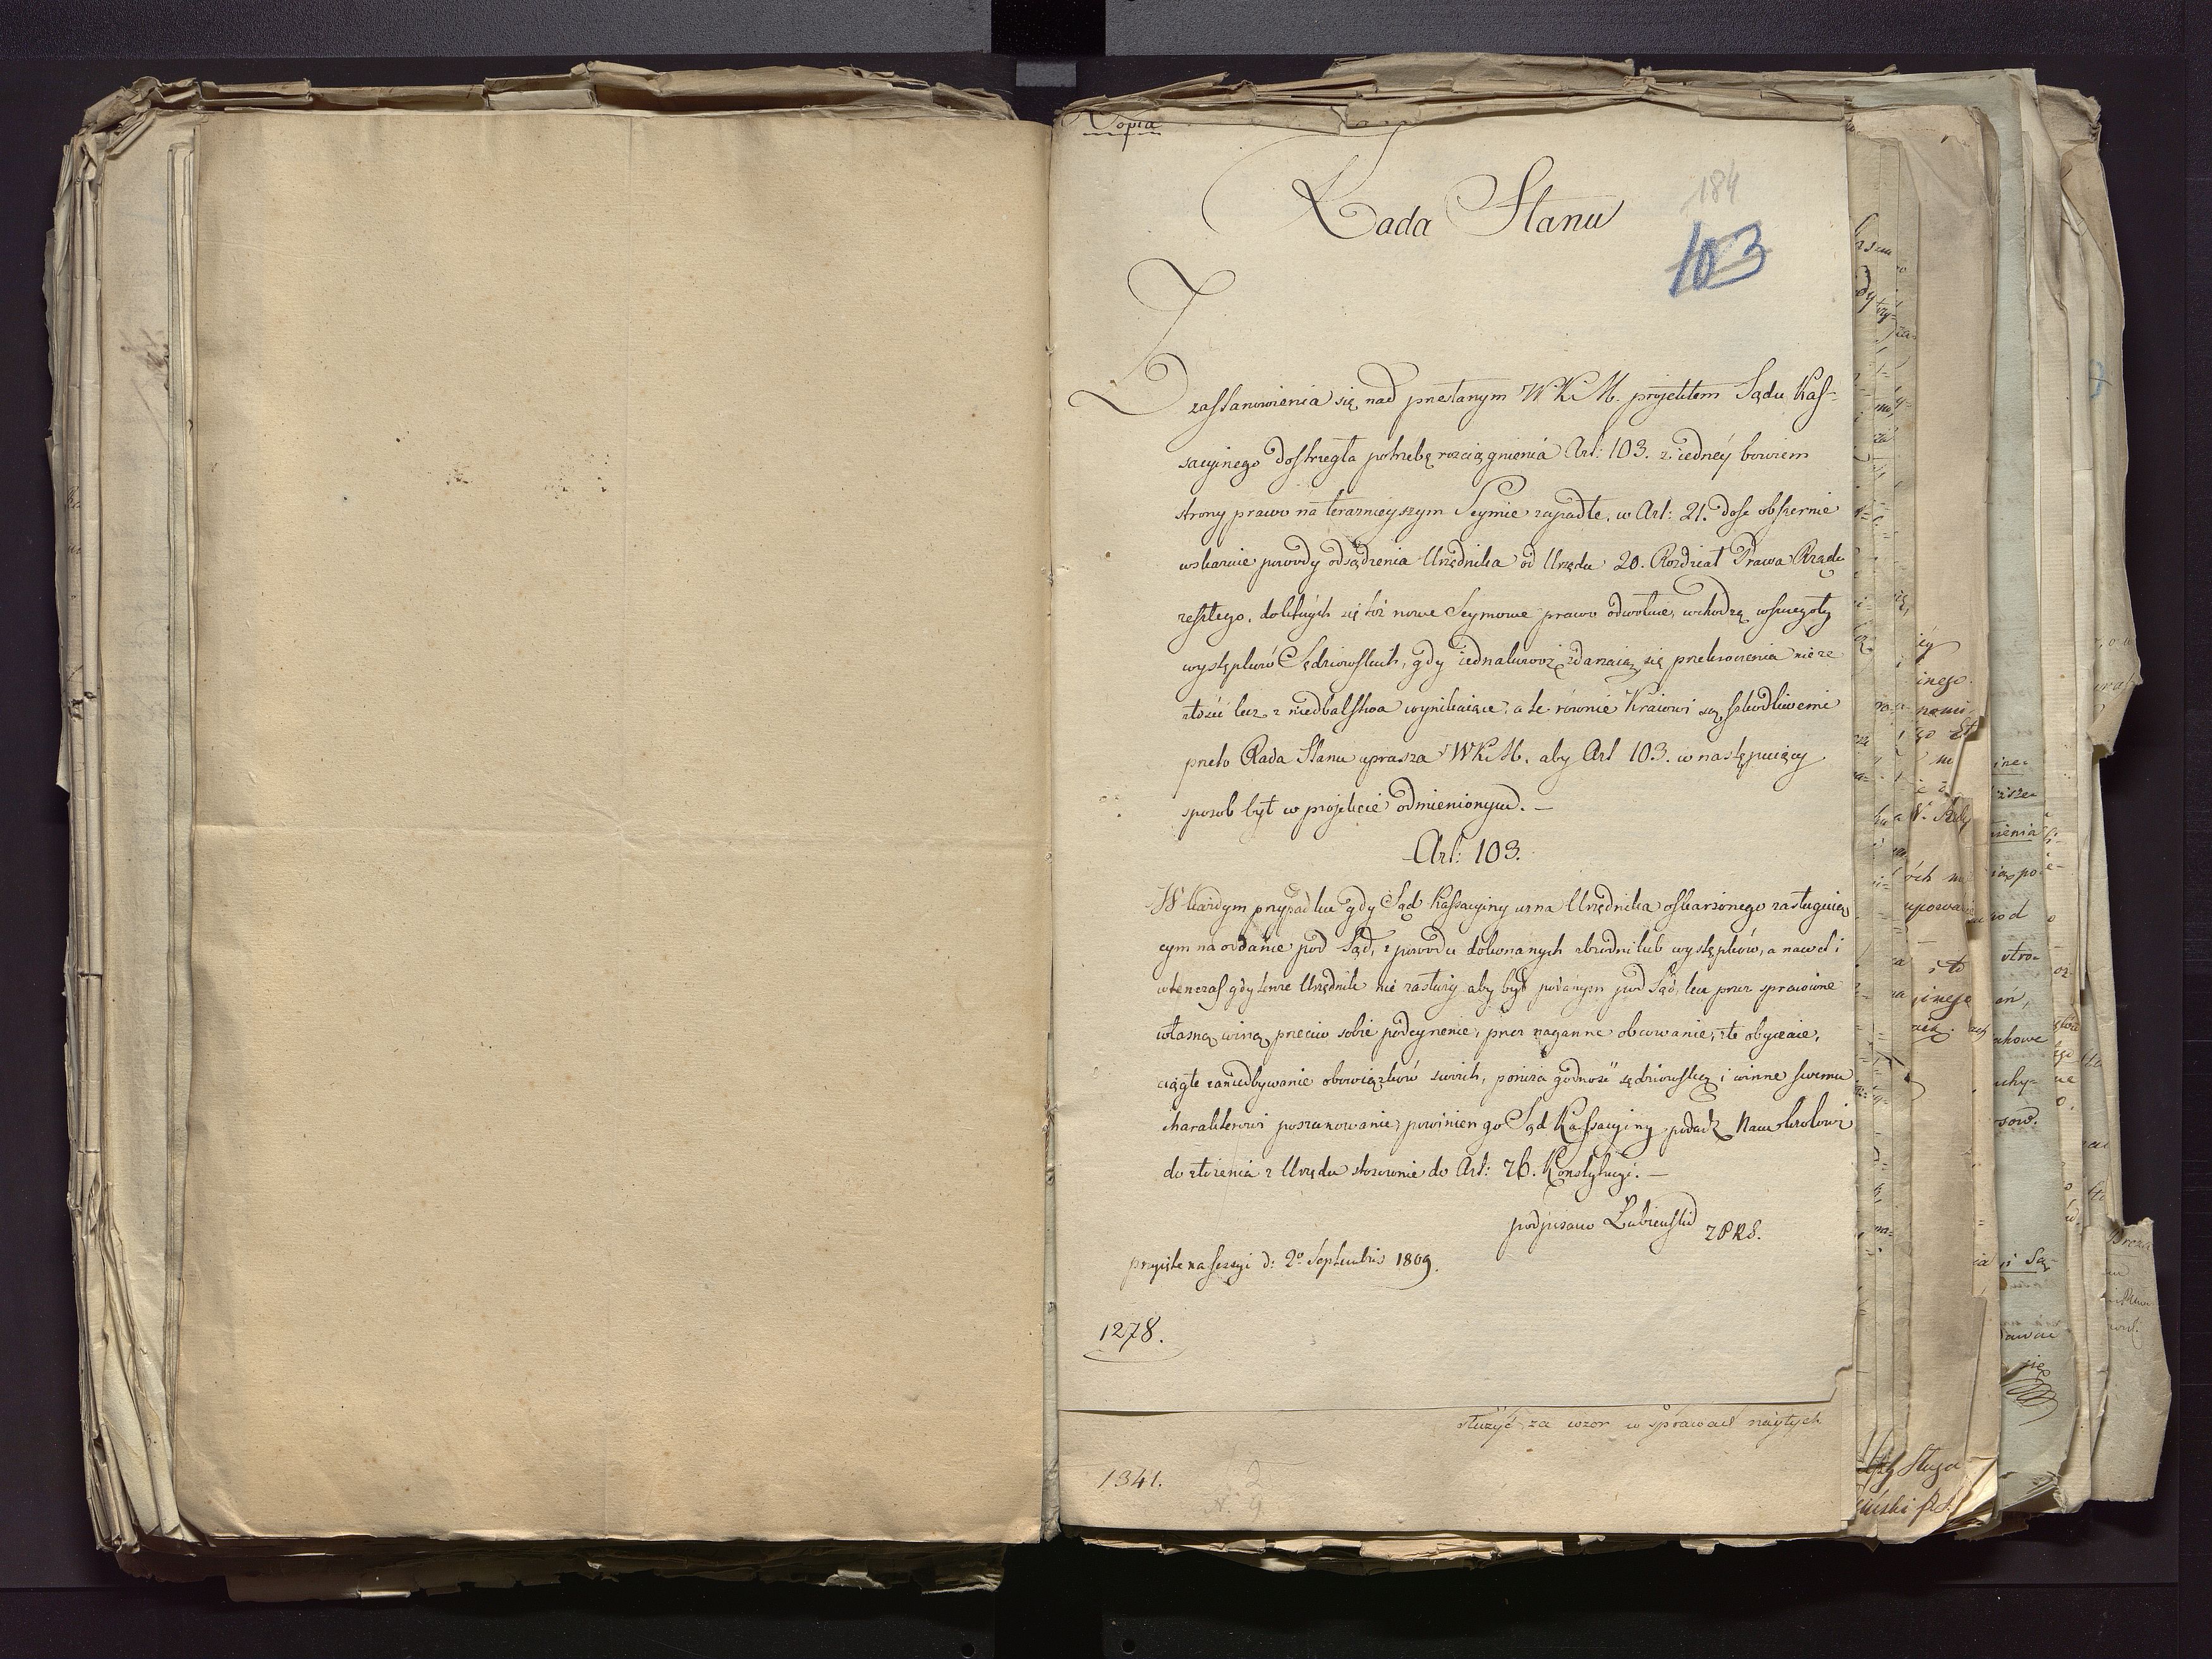 Kopia
Rada Stanu
184
103
Z zastanowienia się nad przesłanym W K M. projektem Sądu Kas=
sacyinego dostrzegła potrzebę rozciągnienia Art: 103. z iedney bowiem
strony prawo na teraznieyszym Seymie zapadłe, w Art: 21. dosc obszernie
wskazuie powody odsądzenia Urzędnika od Urzędu 20. Rozdział Prawa Rządu
zeszłego, do których się też nowe Seymowe prawo odwołuie, wchodzą w szczegoły
występków Sędziowskich, gdy iednakowoż zdarzaią się przekroczenia nie ze
złości lecz z niedbalstwa wynikaiące, a te równie Kraiowi są szkodliwemi
przeto Rada Stanu uprasza W K M. aby Art 103. w następuiący
sposob był w projekcie odmienionym. —
Art: 103.
W każdym przypadku gdy Sąd Kassacyiny uzna Urzędnika oskarżonego zasługuią
cym na oddanie pod Sąd, z powodu dokonanych zbrodni lub występków, a nawet i
wtenczas gdy tenże Urzędnik nie zasłuży aby był podanym pod Sąd, lecz przez sprawione
własną winą przeciw sobie podeyrzenie, przez naganne obcowanie, złe obyczaie,
ciągłe zaniedbywanie obowiązków swoich, poniża godność sędziowską i winne swemu
charakterowi poszanowanie, powinien go Sąd Kassacyiny podać Nam Krolowi
do złożenia z Urzędu stosownie do Art: 76. Konstytucyi. —
podpisano Łubieński z P R S.
przyięte na sessyi d: 2º Septembris 1809.
1278.
służyć za wzor w sprawach
1341.
2